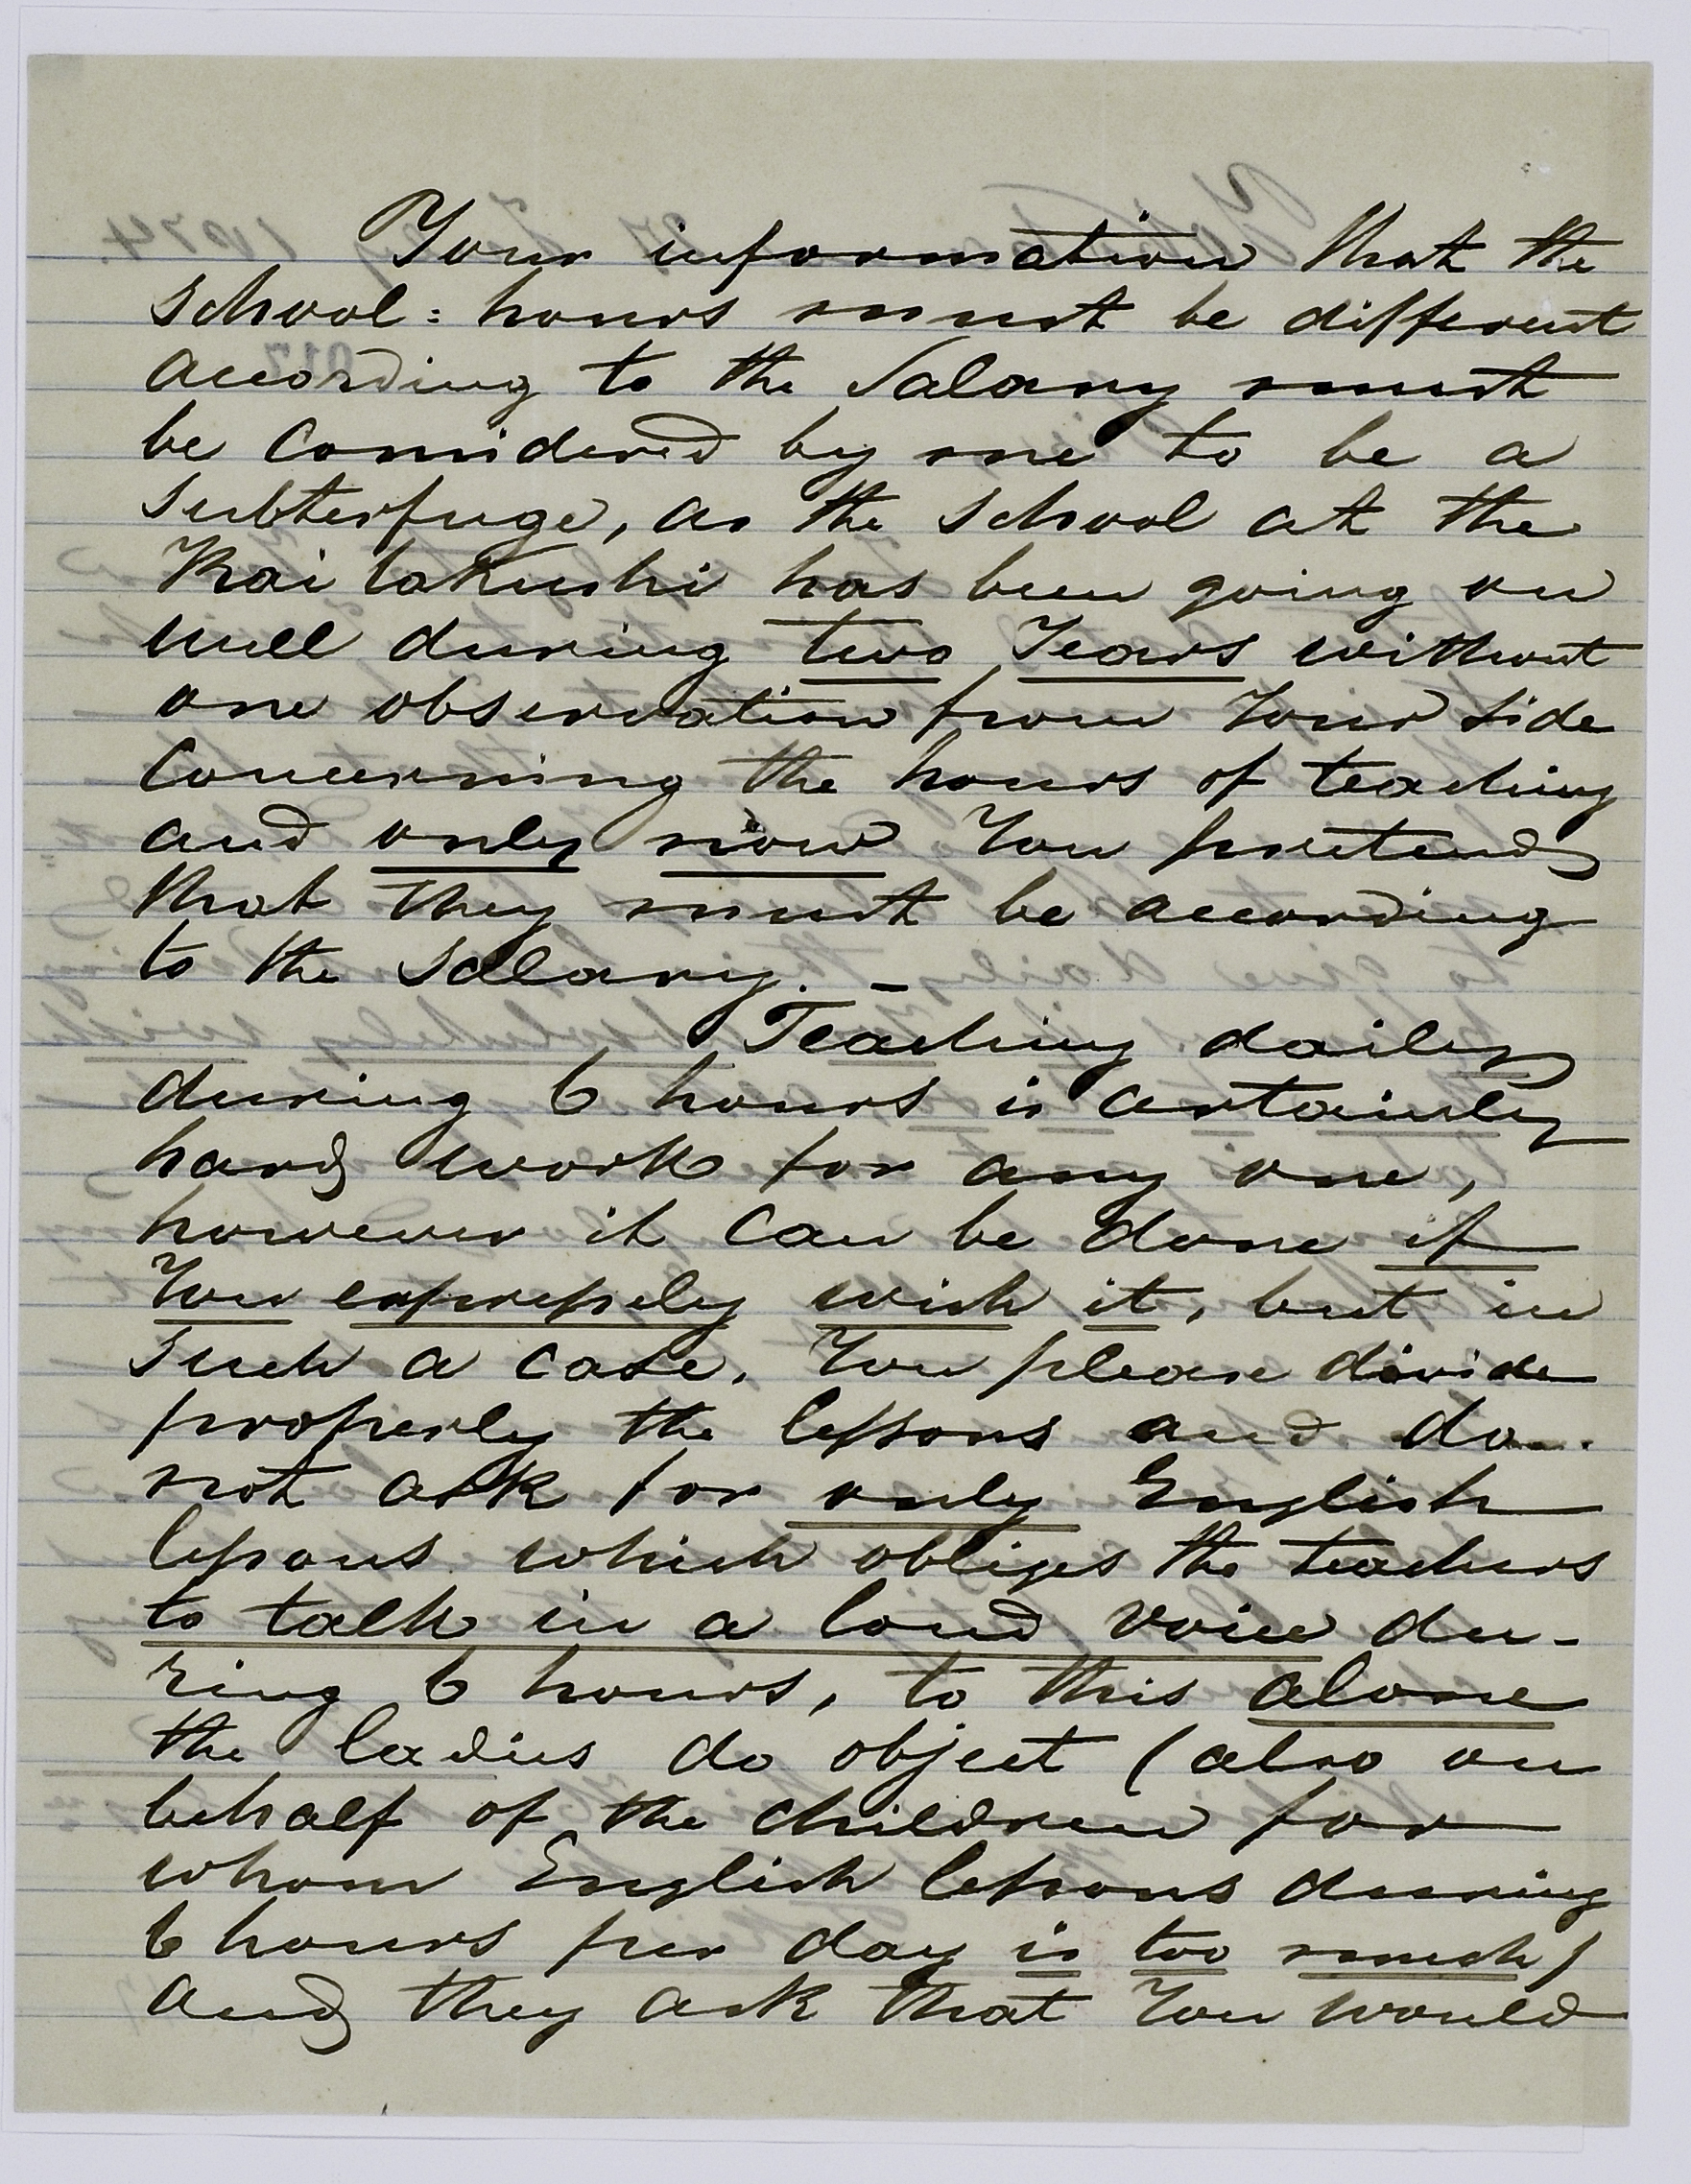 Your information that the
school = hours must be different
according to the Salary must
be considered by me to be a
subterfuge, as the school at the
Kaitakushi has been going on
well during two Years without
one observation from Your side
concerning the hours of teaching
and only now You pretend
that they must be according
to the Salary. —
Teaching daily
during 6 hours is certainly
hard work for any one,
however it can be done if
You expressely wish it, but in
such a case, You please divide
properly the lessons and do
not ask for only English
lessons which obliges the teachers
to talk in a loud voice du-
ring 6 hours, to this alone
the ladies do object (also on
behalf of the children for
whom English lessons during
6 hours per day is too much)
and they ask that You would